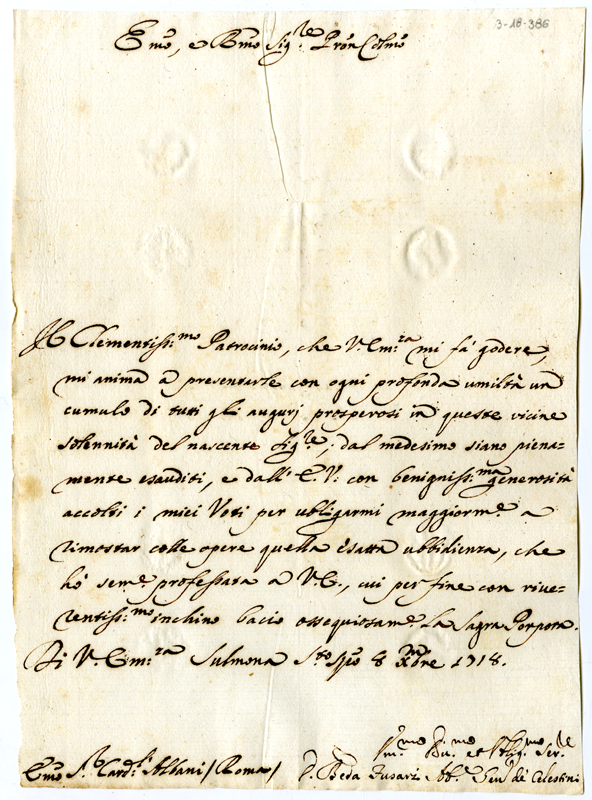 3-18-386
Emo, e Rmo Sig.re Pròn Colmo
Il Clementiss:mo Patrocinio, che V. Em:za mi fà godere,
mi anima à presentarle con ogni profonda umiltà un
cumulo di tutti gli augurj prosperosi in queste vicine
solennità del nascente Sig.re, dal medesimo siano piena-
mente esauditi, e dall' E. V: con benigniss:ma generosità
accolti i miei Voti per ubligarmi maggiorm.e a
rimostar colle opere quella esatta ubbidienza, che
hò sem.e professata a V. E., cui per fine con rive-
rentiss:mo inchino bacio ossequiosam.e La Sagra Porpora.
Di V. Em:za Sulmona S.to Spò 8 Xmbre 1718.
Um.mo Di.mo et Oblig.mo Ser.re
Emo S.r Card.l Albani / Roma / D. Beda Fusari Abb.e Gen.le de Celestini